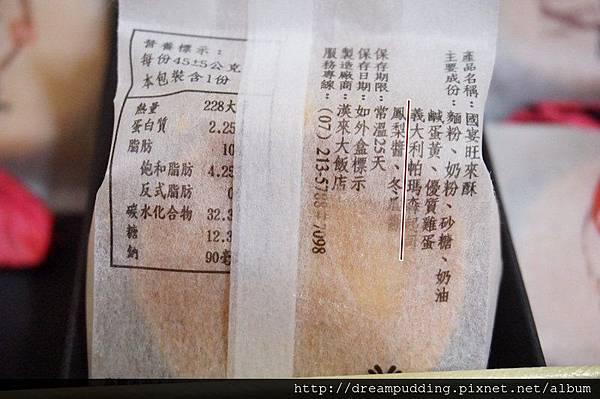 營養標示：
每份45±5公克
本包裝含1份
熱量 228大
蛋白質 2.25
脂肪 10
飽和脂肪 4.25
反式脂肪 0
碳水化合物 32.3
糖 12.3
鈉 90毫
產品名稱：國宴旺來酥
主要成份：麵粉、奶粉、砂糖、奶油
鹹蛋黃、優質雞蛋
義大利帕瑪森
鳳梨醬、冬瓜
保存期限：常溫25天
保存日期：如外盒標示
製造廠商：漢來大飯店
服務專線：(07) 213-5788#7098
http://dreampudding.pixnet.net/album